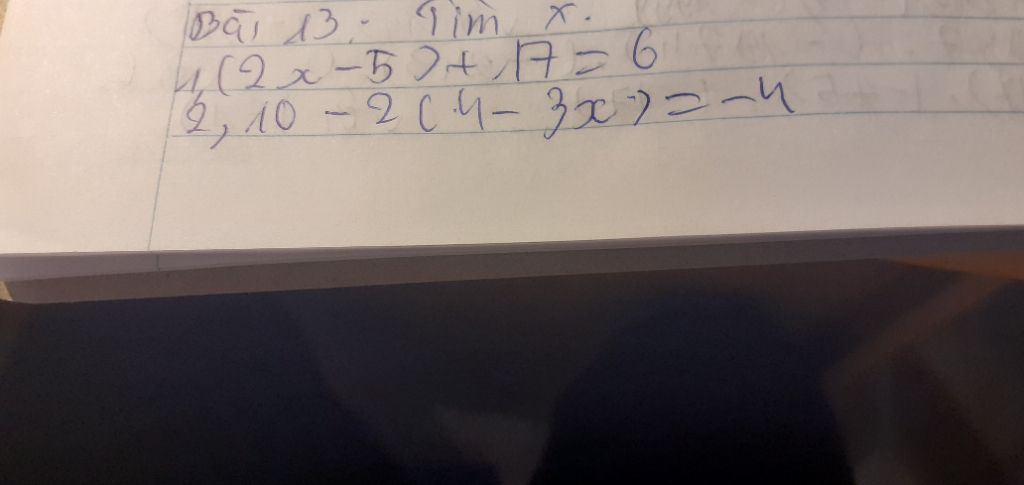 Bài 13: Tìm x.
1, (2x - 5) + 17 = 6
2, 10 - 2 (4 - 3x) = -4